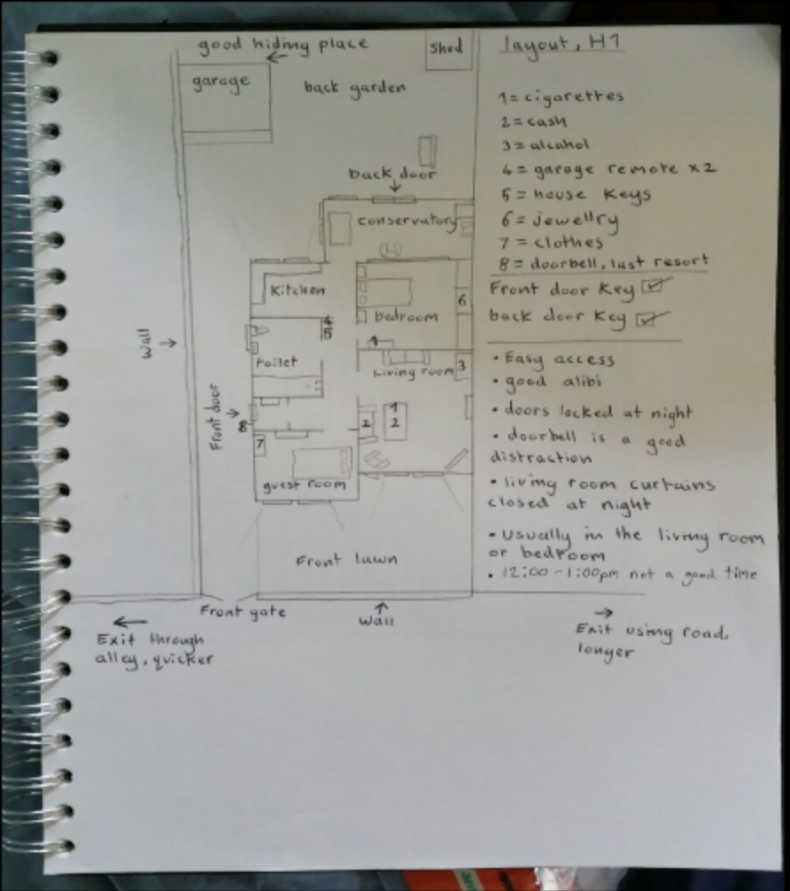 good hiding place
shed
garage
back garden
back door
conservatory
Kitchen
4
5
bedroom
6
Wall
toilet
1
Living room
3
Front door
8
7
2
1
2
guest room
Front lawn
Front gate
Wall
Exit through
alley, quicker
Exit using road,
longer
layout, H1
1 = cigarettes
2 = cash
3 = alcohol
4 = garage remote x2
5 = house keys
6 = jewellry
7 = clothes
8 = doorbell, last resort
Front door key ☑
back door key ☑
• Easy access
• good alibi
• doors locked at night
• doorbell is a good
distraction
• living room curtains
closed at night
• Usually in the living room
or bedroom
• 12:00-1:00pm not a good time